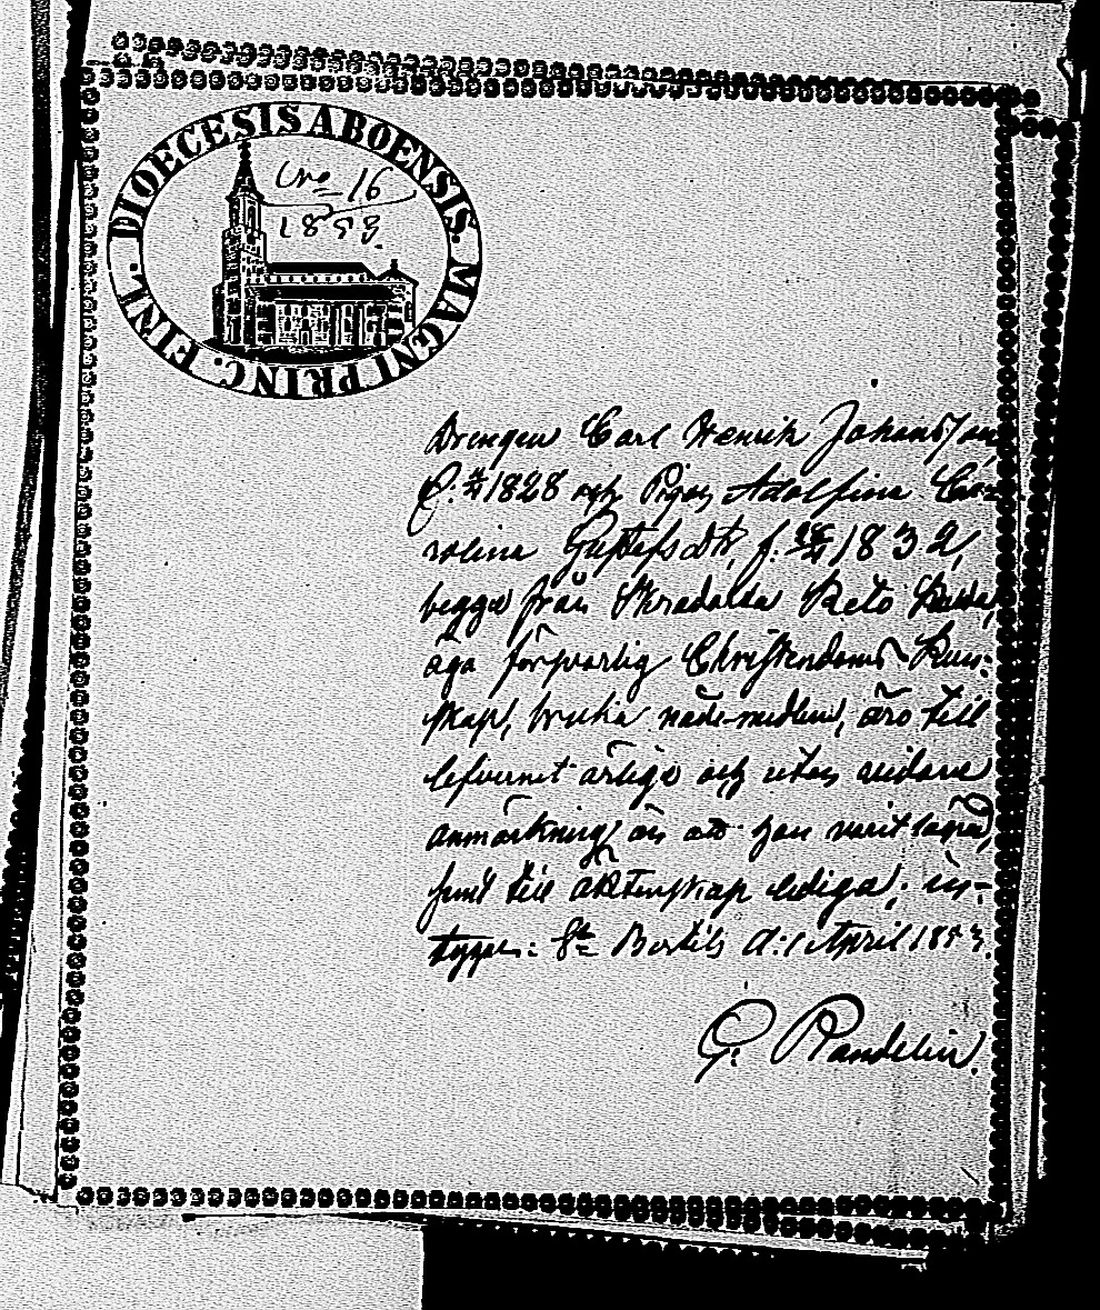 DIOECESIS ABOENSIS. MAGNI PRINC. FINL.
16
1853.
Drengen Carl Henrik Johansson
f. 1828 och Pigan Adolfina Ca-
rolina Gustafsdtr, f. 1832,
begge från
äga försvarlig Christendoms Kun-
skap, bruka nådemedlen, äro till
lefvernet ärlige och utan andara
anmärkning än att han varit sagd,
samt till äktenskap lediga; in-
tygar: St Bertils d: 1 April 1853.
G: Randelin.